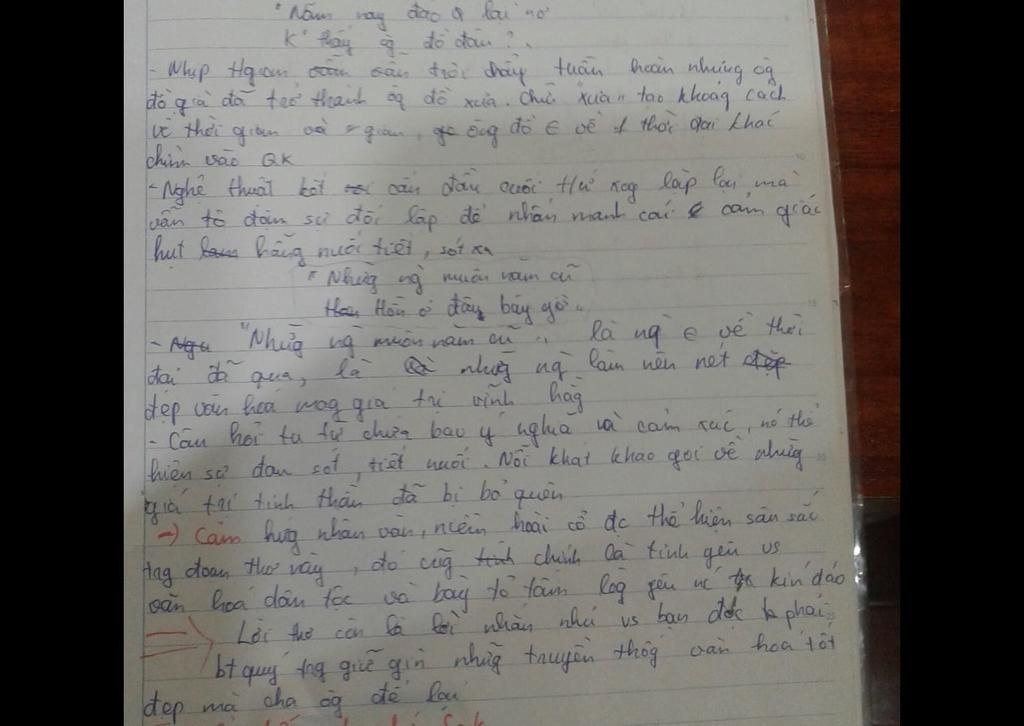 "Năm nay đào lại nở
K thấy ôg đồ đâu?"
- Nhịp tgian vẫn trôi chảy tuần hoàn nhưng ôg
đồ già đã trở thành ôg đồ xưa. Chữ "xưa" tạo khoảg cách
về thời gian và gian, ôg đồ ∈ về 1 thời đại khác
chìm vào QK
- Nghệ thuật kết cấu đầu cuối tứ xog lặp lại mà
vẫn tô đậm sự đối lập để nhấn mạnh cái cảm giác
hụt hẫg nuối tiết, sót xa
"Nhữg ng muôn năm cũ
Hồn ở đâu bây giờ"
- "Nhữg ng muôn năm cũ" là ng ∈ về thời
đại đã qua, là nhữg ng làm nên nét
đẹp văn hoá mag giá trị vĩnh hằg
- Câu hỏi tu từ chứa bao ý nghĩa và cảm xúc, nó thể
hiện sự đau sót, tiết nuối. Nỗi khát khao gọi về nhữg
giá trị tinh thần đã bị bỏ quên
→ Cảm hứg nhân văn, niềm hoài cổ đc thể hiện sâu sắc
tng đoạn thơ này, đó cũg chính là tình yêu vs
văn hoá dân tộc và bày tỏ tấm lòg yêu nc kín đáo
Lời thơ còn là lời nhắn nhủ vs bạn đọc phải
bt quý tng giữ gìn nhữg truyền thốg văn hoá tốt
đẹp mà cha ôg để lại